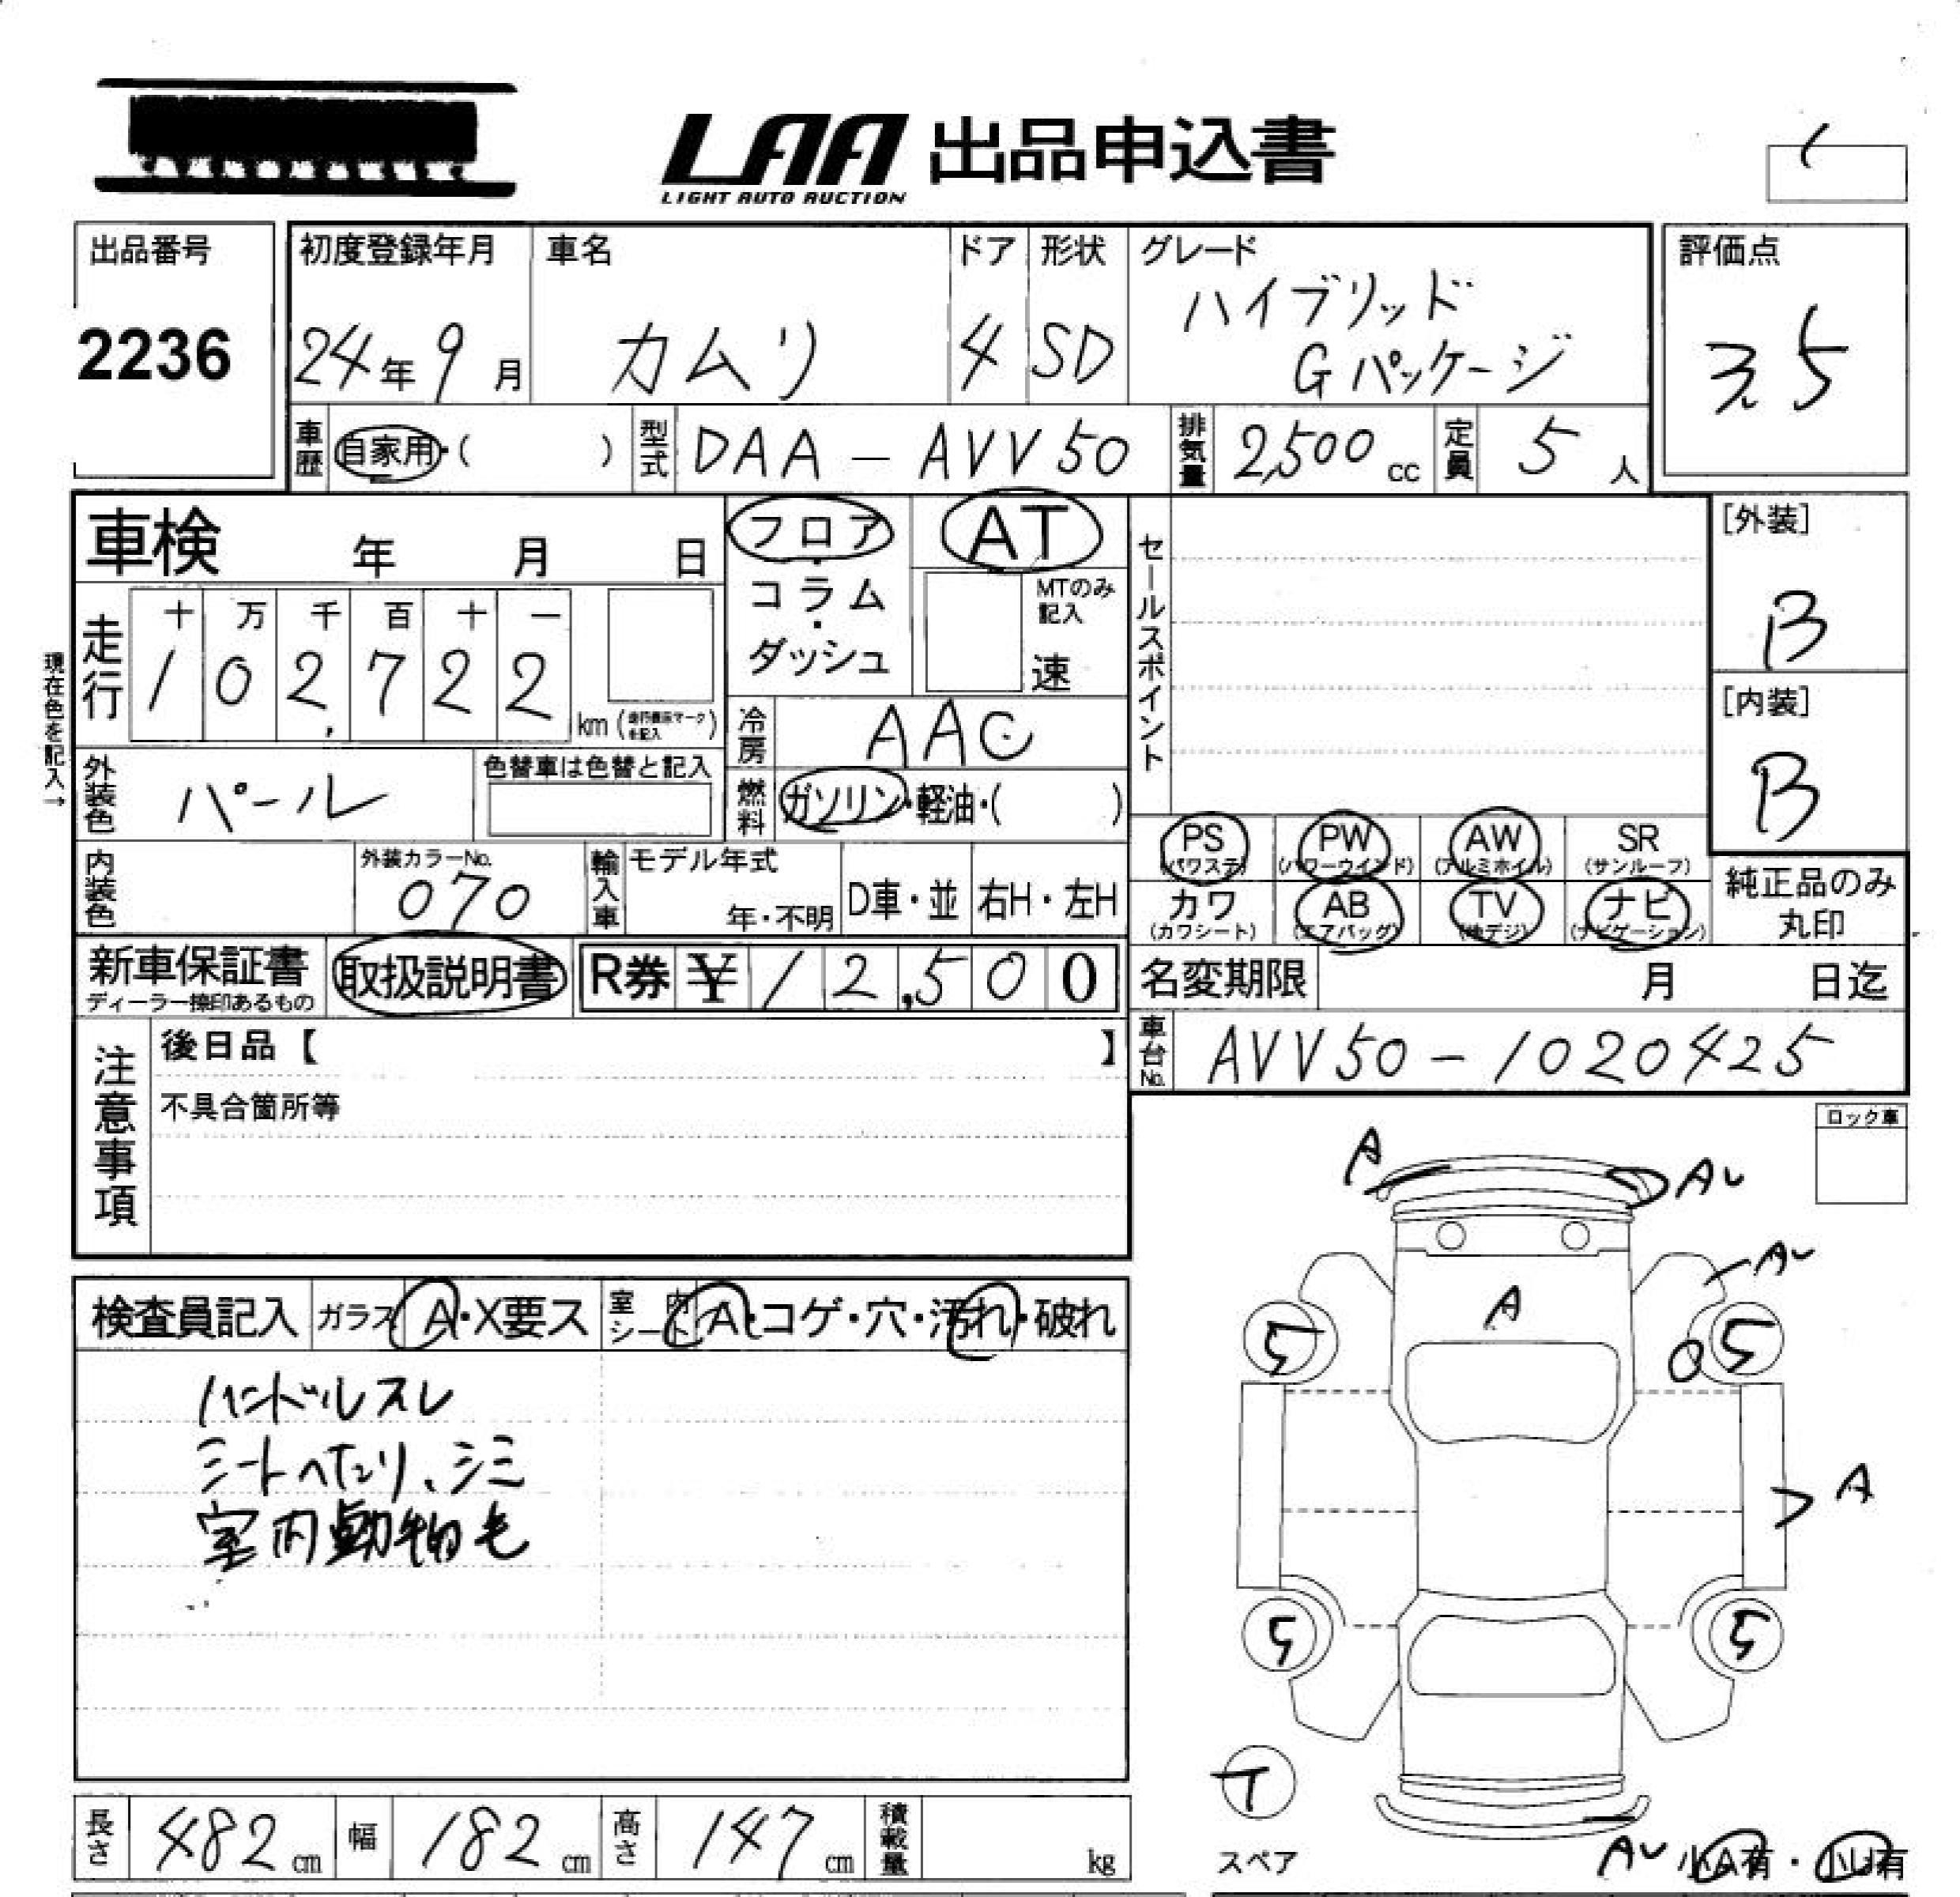 LAA 出品申込書
LIGHT AUTO AUCTION
出品番号
2236
初度登録年月
24年 9月
車名
カムリ
ドア
4
形状
SD
グレード
ハイブリッド
Gパッケージ
評価点
3.5
車歴 自家用・( )
型式 DAA-AVV50
排気量 2,500 cc
定員 5人
車検 年 月 日
フロア・コラム・ダッシュ
AT
MTのみ記入
速
セールスポイント
[外装]
B
[内装]
B
現在色を記入→
走行
十 万 千 百 十 一
102,722 km
冷房 AAC
外装色 パール
色替車は色替と記入
燃料 ガソリン・軽油・( )
PS (パワステ)
PW (パワーウインド)
AW (アルミホイル)
SR (サンルーフ)
カワ (カワシート)
AB (エアバッグ)
TV (地デジ)
ナビ (ナビゲーション)
純正品のみ丸印
内装色
外装カラーNo.
070
輸入車
モデル年式
年・不明
D車・並
右H・左H
新車保証書
ディーラー捺印あるもの
取扱説明書
R券 ¥12,500
名変期限 月 日迄
車台No. AVV50-1020425
注意事項
後日品【 】
不具合箇所等
ロック車
A
AU
AU
A
5
5
A
5
5
T
スペア
AU 小A有・小U有
検査員記入
ガラス A・X要ス
室内シート A・コゲ・穴・汚れ・破れ
ハンドルスレ
シートヘたり、シミ
室内動物毛
長さ 482 cm
幅 182 cm
高さ 147 cm
積載量 kg